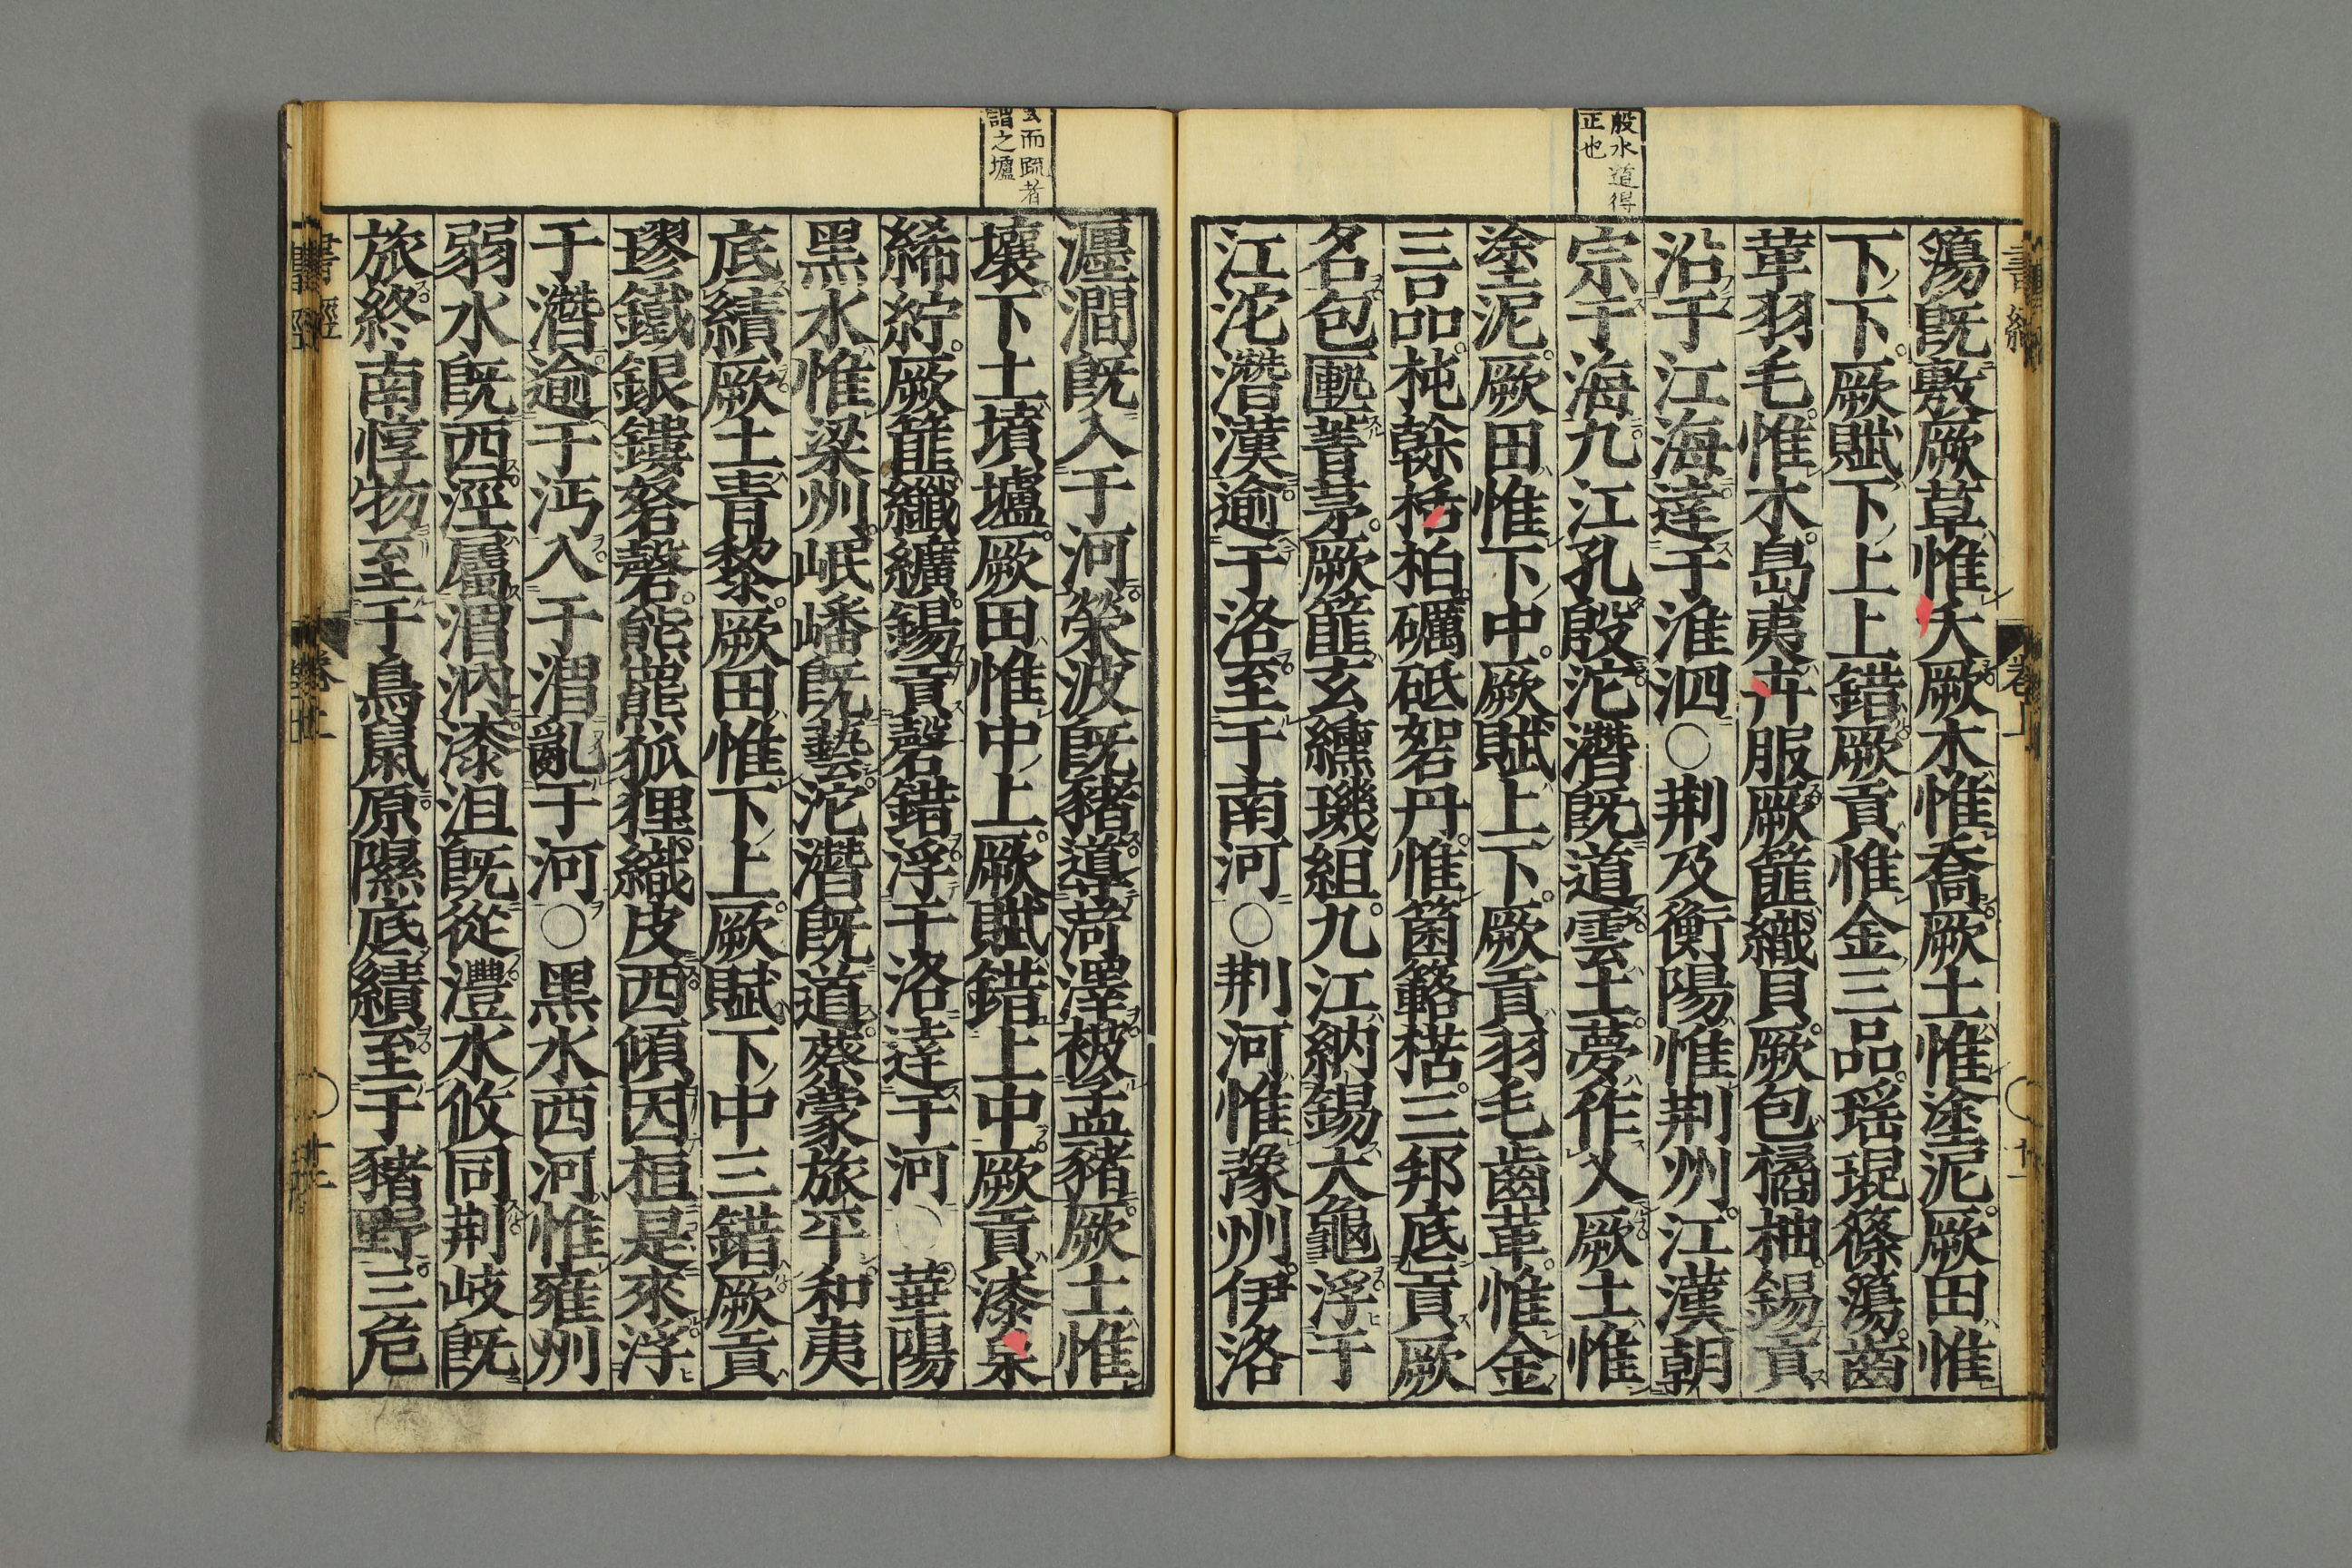 殷水道得
正也
篠既敷厥草惟夭厥木惟喬厥土惟塗泥厥田惟
下下厥賦下上上錯厥貢惟金三品瑶琨篠簜齒
革羽毛惟木島夷卉服厥篚織貝厥包橘柚錫貢
沿于江海達于淮泗○荆及衡陽惟荆州江漢朝
宗于海九江孔殷沱潛既道雲土夢作乂厥土惟
塗泥厥田惟下中厥賦上下厥貢羽毛齒革惟金
三品杶榦栝柏礪砥砮丹惟箘簵楛三邦底貢厥
名包匭菁茅厥篚玄纁璣組九江納錫大龜浮于
江沱潛漢逾于洛至于南河○荆河惟豫州伊洛
玄而疏者
謂之壚
瀍澗既入于河滎波既豬導菏澤被孟豬厥土惟
壤下土墳壚厥田惟中上厥賦錯上中厥貢漆枲
絺紵厥篚纖纊錫貢磬錯浮于洛達于河○華陽
黑水惟梁州岷嶓既藝沱潛既道蔡蒙旅平和夷
底績厥土青黎厥田惟下上厥賦下中三錯厥貢
璆鐵銀鏤砮磬熊羆狐狸織皮西傾因桓是來浮
于潛逾于沔入于渭亂于河○黑水西河惟雍州
弱水既西涇屬渭汭漆沮既從灃水攸同荆岐既
旅終南惇物至于鳥鼠原隰底績至于豬野三危
書經
卷上